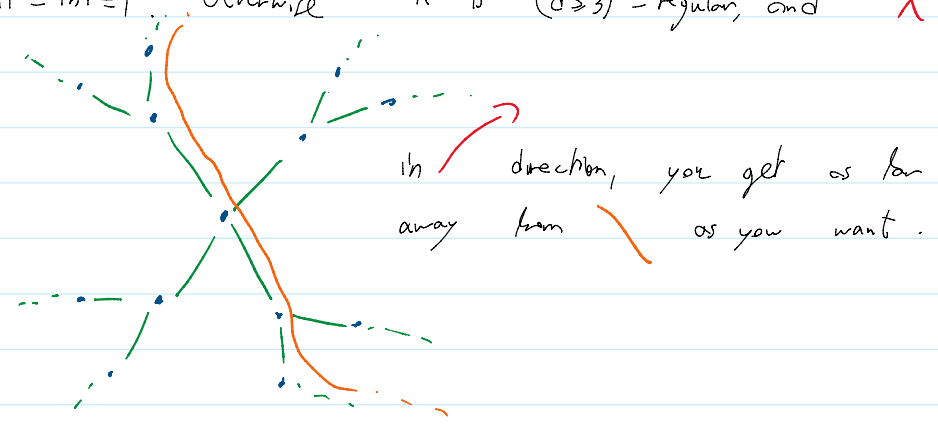 otherwise (d ≥ 3) - regular, and
in direction, you get as far
away from as you want.